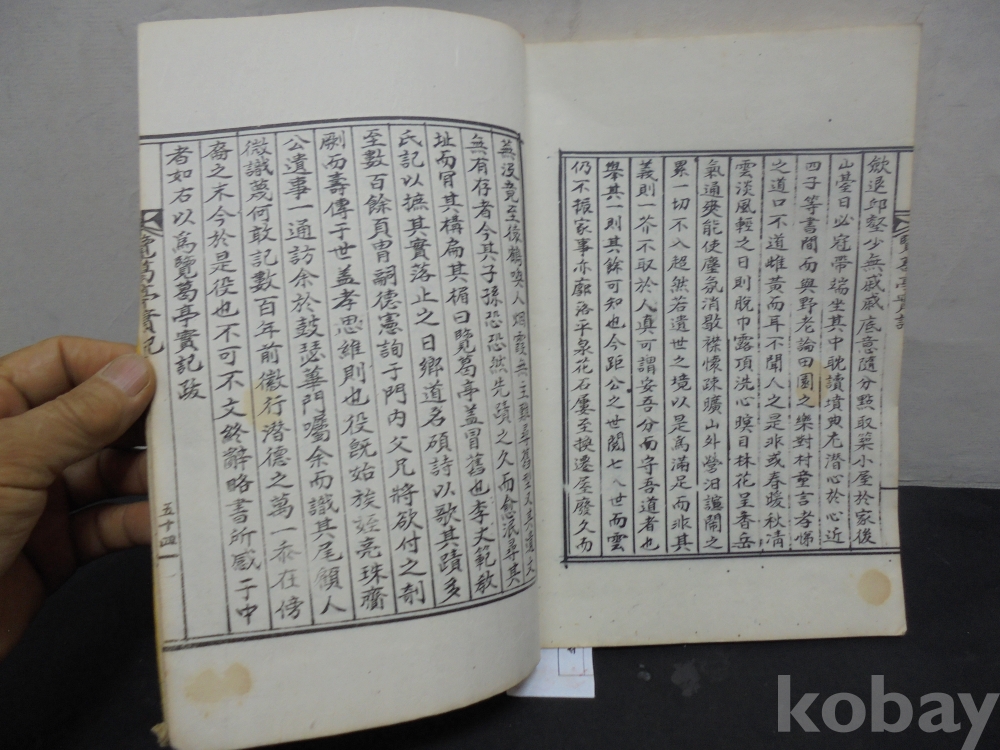 歛退邱壑少無戚戚底意隨分點取築小屋於家後
山㙜日必冠帶端坐其中耽讀墳典尤潛心於心近
四子等書間而與野老論田園之樂對村童言孝悌
之道口不道雌黃而耳不聞人之是非或春暖秋清
雲淡風輕之日則脫巾露頂洗心暝目林花呈香岳
氣通爽能使塵氛消歇襟懷疎曠山外營汨諠鬧之
累一切不入超然若遺世之境以是爲滿足而非其
義則一芥不取於人眞可謂安吾分而守吾道者也
擧其一則其餘可知也今距公之世閱七八世而雲
仍不振家事亦廓落平泉花石屢至換遷屋廢久而
蕪沒竟至猿鶴唳人烟霞無主難尋舊型又其遺文
無有存者今其子孫恐恐然先蹟之久而愈泯尋其
址而冐其構扁其楣曰覽葛亭盖冐舊也李丈範敎
氏記以摭其實落止之日鄕道名碩詩以歌其蹟多
至數百餘頁胄嗣德憲詢于門內父兄將欲付之剞
劂而壽傳于世盖孝思維則也役旣始族姪亮珠齎
公遺事一通訪余於鼓瑟華門囑余而識其尾顧人
微識蔑何敢記數百年前徽行潛德之萬一忝在傍
裔之末今於是役也不可不文終辭略書所感于中
者如右以爲覽葛亭實記跋
覽葛亭實記
五十四
覽葛亭實記
kobay